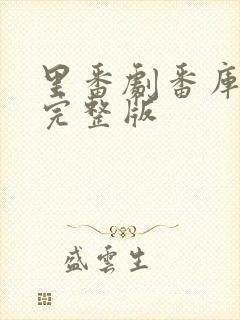 里番劇番庫
完整版
盛雲生